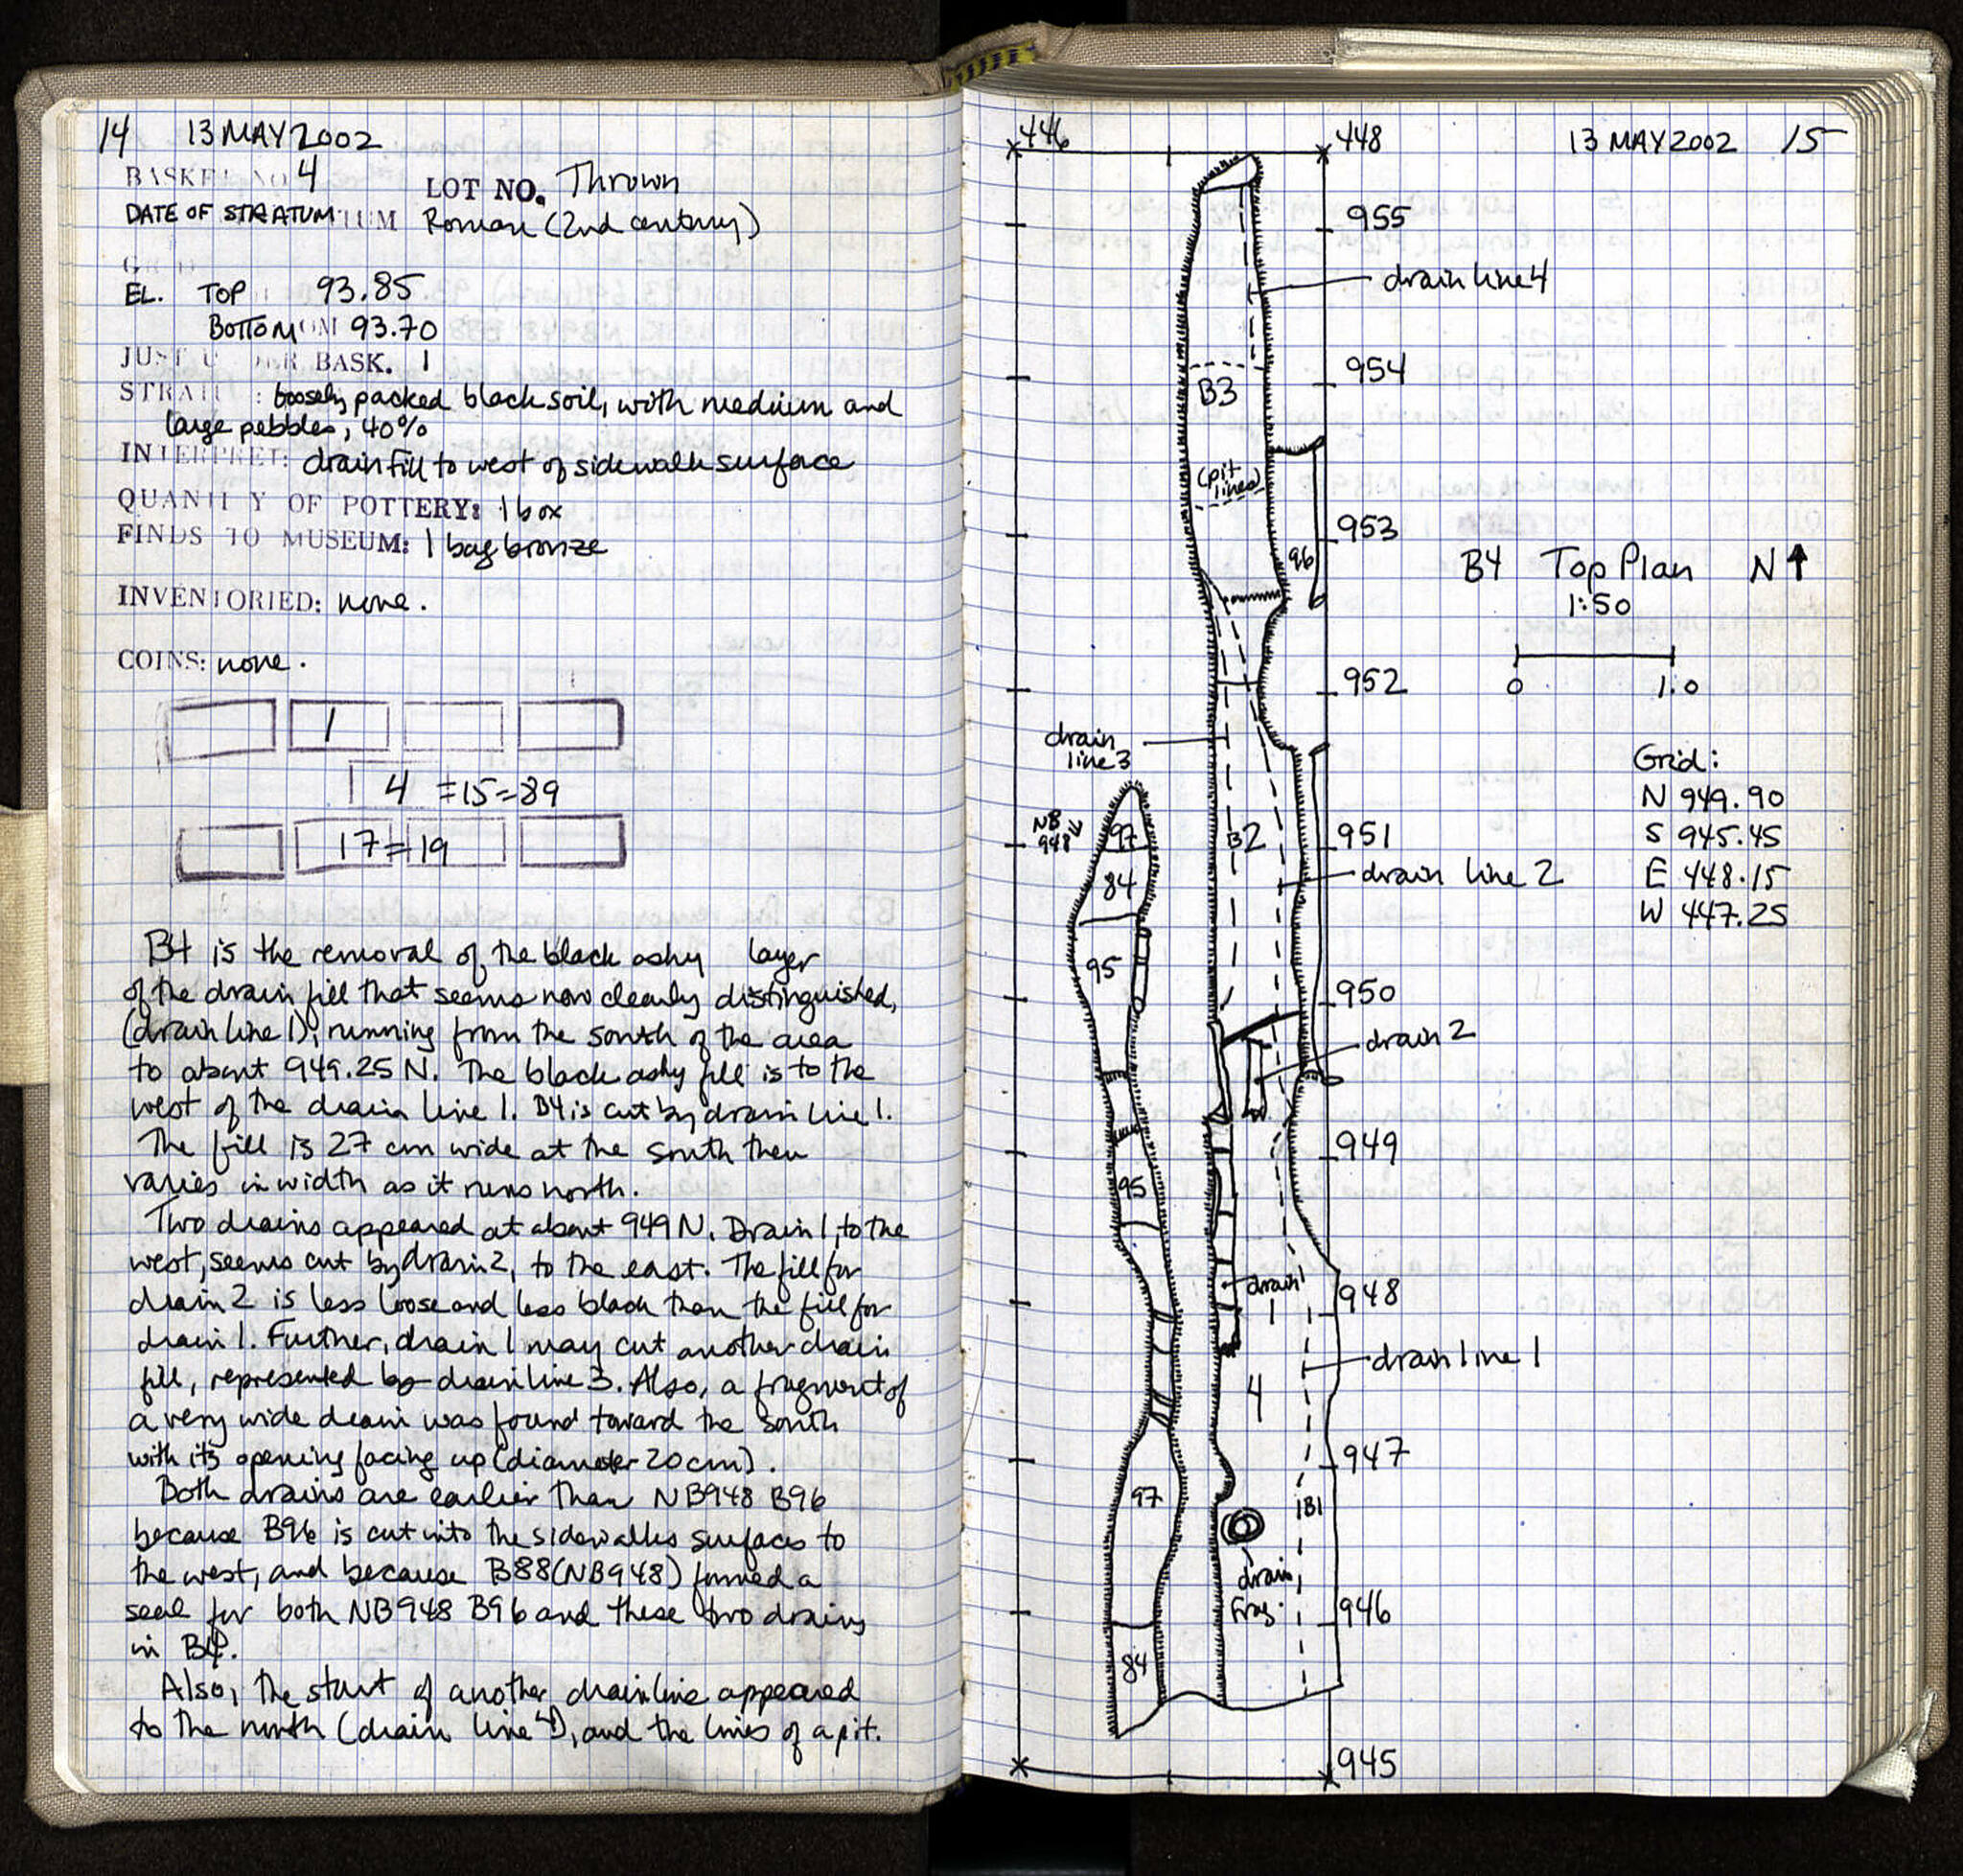 14 13 MAY 2002
BASKET NO 4 LOT NO. Thrown
DATE OF STRATUM Roman (2nd century)
EL. TOP 93.85
BOTTOM 93.70
JUST UNDER BASK. 1
STRAT : loosely packed black soil, with medium and
large pebbles, 40%
INTERPRET: drain fill to west of sidewalk surface
QUANTITY OF POTTERY: 1 box
FINDS TO MUSEUM: 1 bag bronze
INVENTORIED: none.
COINS: none.
1
4 =15=89
17=19
B4 is the removal of the black ashy layer
of the drain fill that seems now clearly distinguished,
(drain line 1), running from the south of the area
to about 949.25 N. The black ashy fill is to the
west of the drain line 1. B4 is cut by drain line 1.
The fill is 27 cm wide at the south then
varies in width as it runs north.
Two drains appeared at about 949 N. Drain 1, to the
west, seems cut by drain 2, to the east. The fill for
drain 2 is less loose and less black than the fill for
drain 1. Further, drain 1 may cut another drain
fill, represented by drain line 3. Also, a fragment of
a very wide drain was found toward the south
with its opening facing up (diameter 20cm).
Both drains are earlier than NB948 B96
because B96 is cut into the sidewalks surfaces to
the west, and because B88 (NB948) formed a
seal for both NB948 B96 and these two drains
in B4.
Also, the start of another drainline appeared
to the north (drain line 4), and the lines of a pit.
446 448 13 MAY 2002 15
955
drain line 4
954
B3
(pit
lines)
953
96
B4 Top Plan N
1:50
952
0 1.0
drain
line 3
Grid:
N 949.90
S 945.45
E 448.15
W 447.25
NB
948
97
B2
951
84
drain line 2
95
950
drain 2
949
95
drain 1
948
drain line 1
4
947
97
B1
drain
frag.
946
84
945